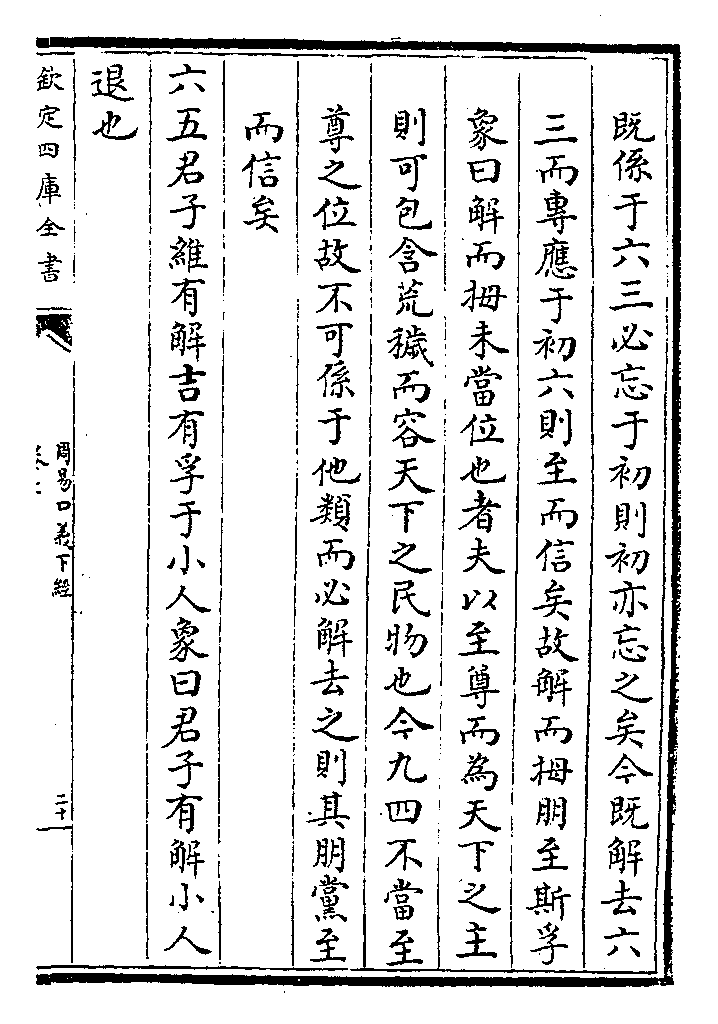 既係于六三必忘于初則初亦忘之矣今既解去六
三而專應于初六則至而信矣故解而拇朋至斯孚
象曰解而拇未當位也者夫以至尊而為天下之主
則可包含荒穢而容天下之民物也今九四不當至
尊之位故不可係于他類而必解去之則其朋黨至
而信矣
六五君子維有解吉有孚于小人象曰君子有解小人
退也
欽定四庫全書
周易口義下經
二十